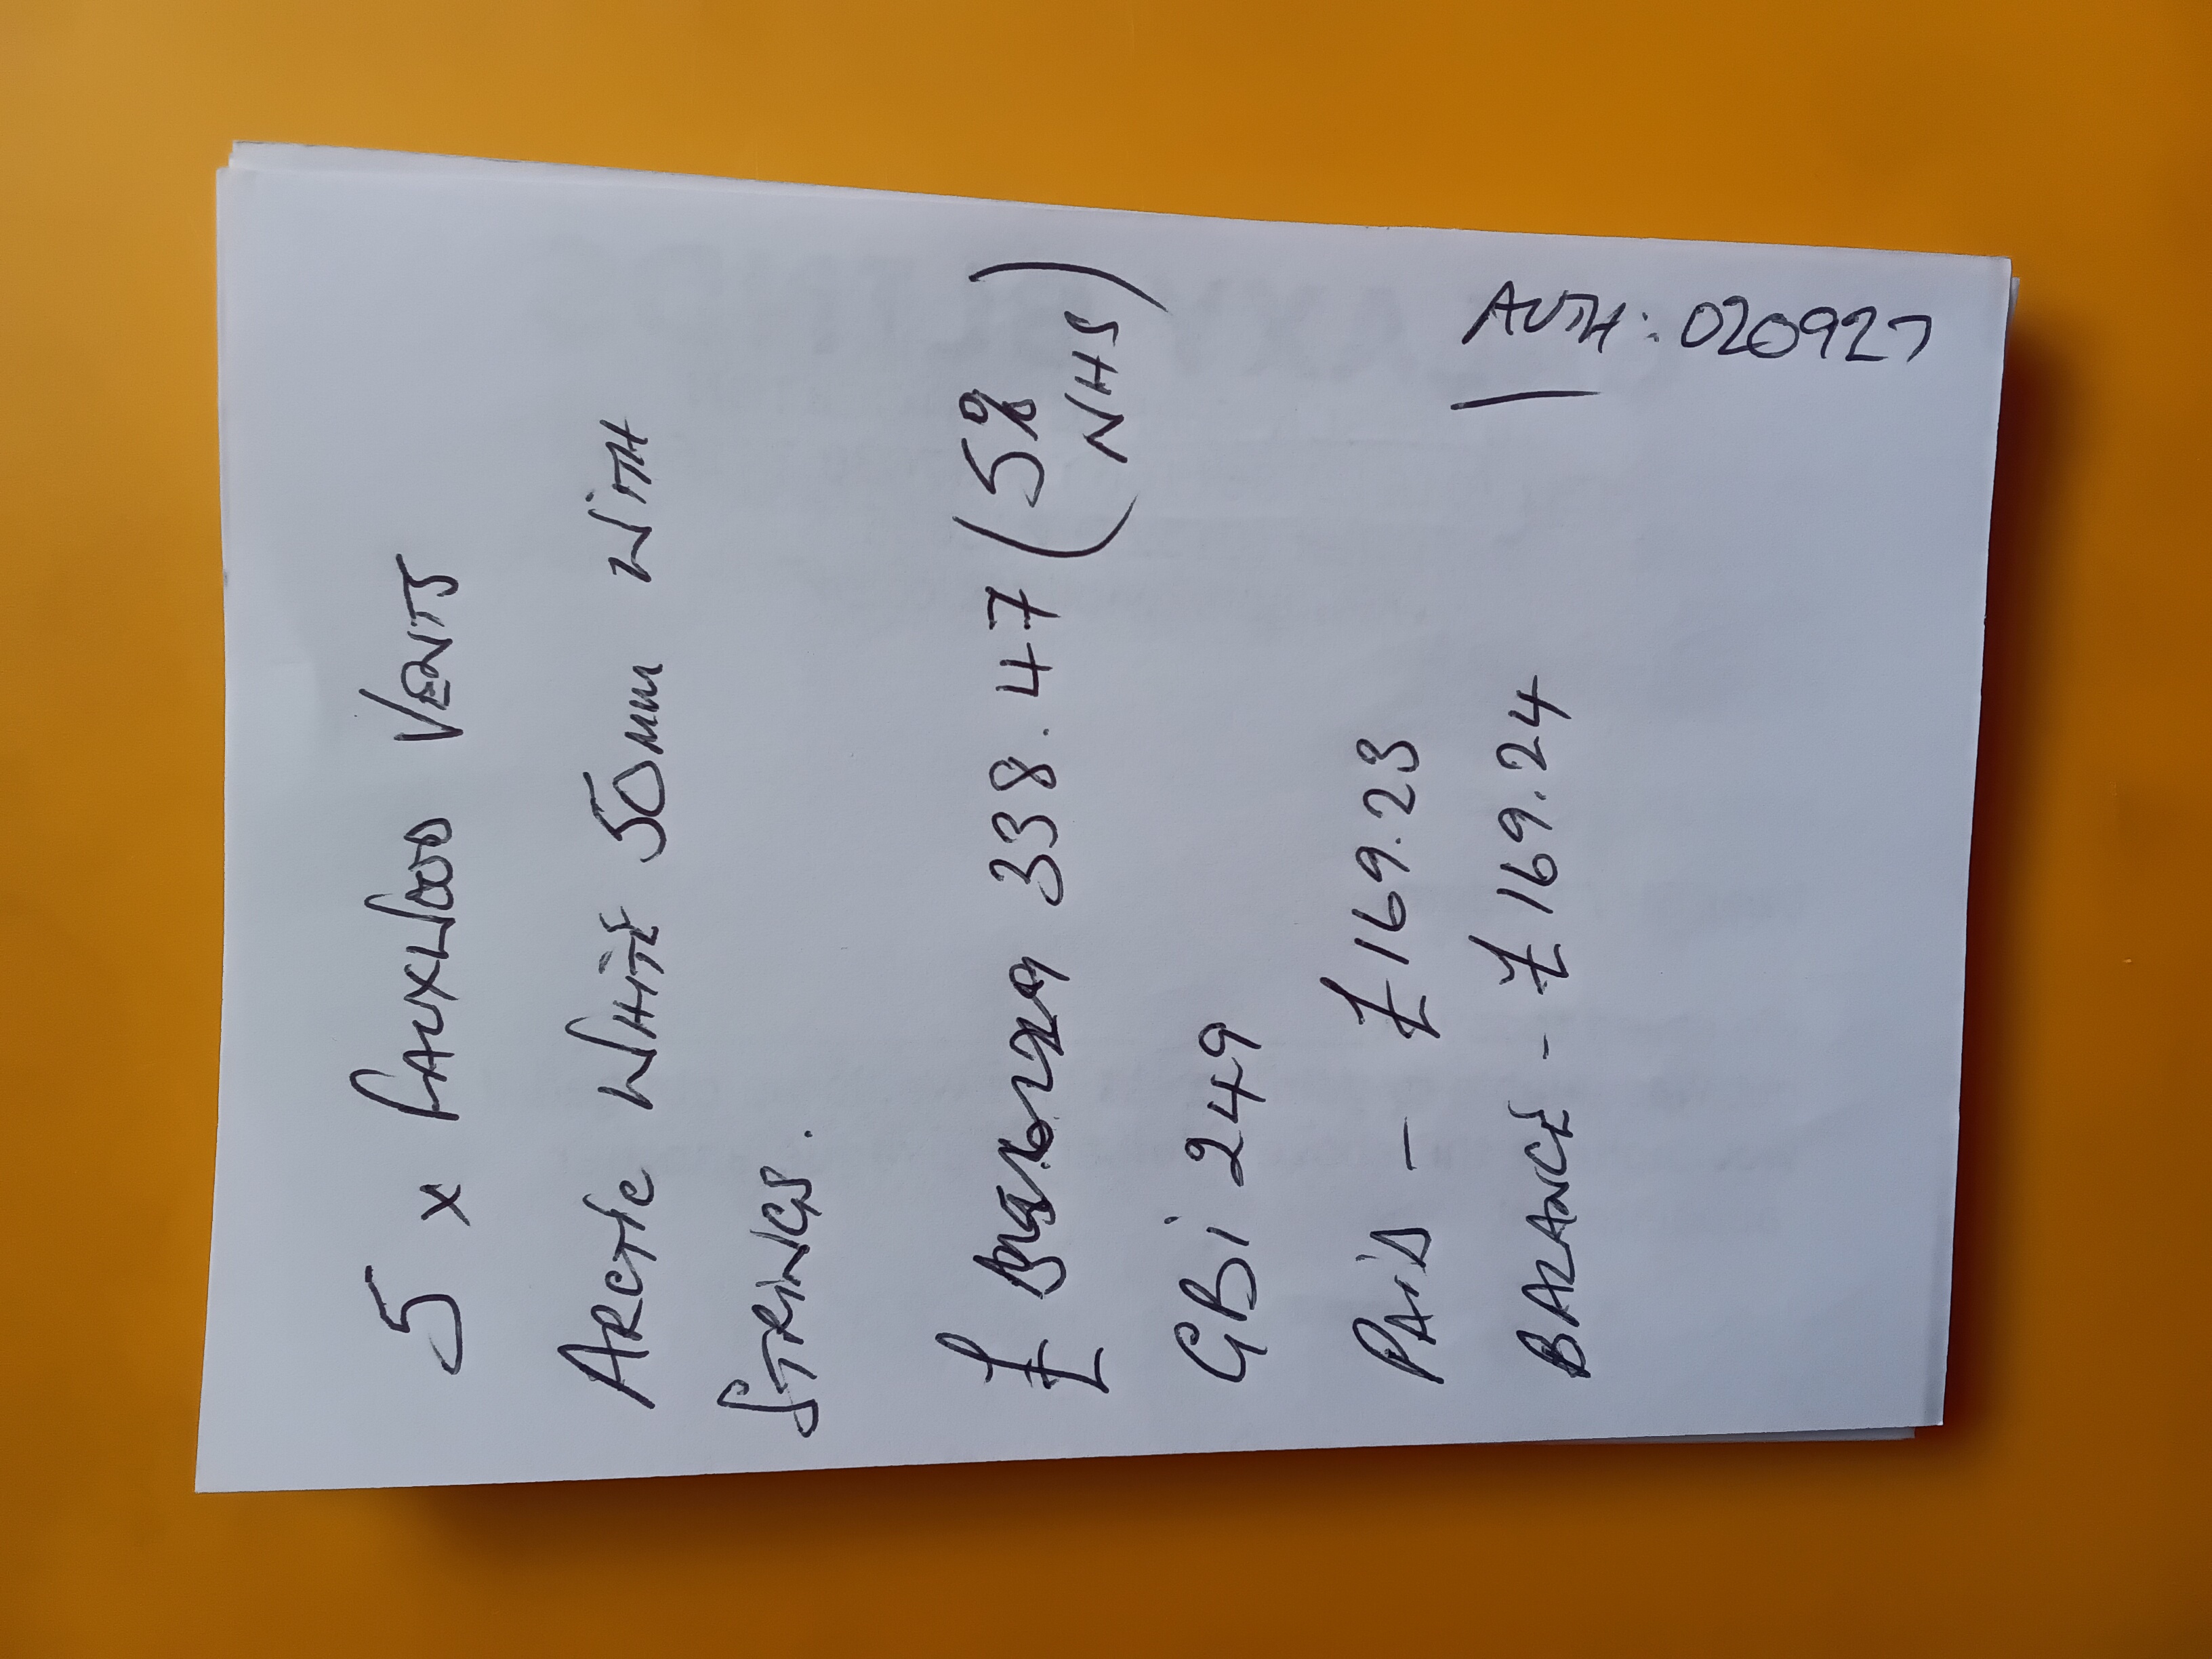 5 x FAUXWOOD VENTS
ARCTIC WHITE 50MM WITH
STRINGS.
£ 338.47 (5% NHS)
GBi 249
PAiD - £169.23
BALANCE - £169.24
AUTH: 020927